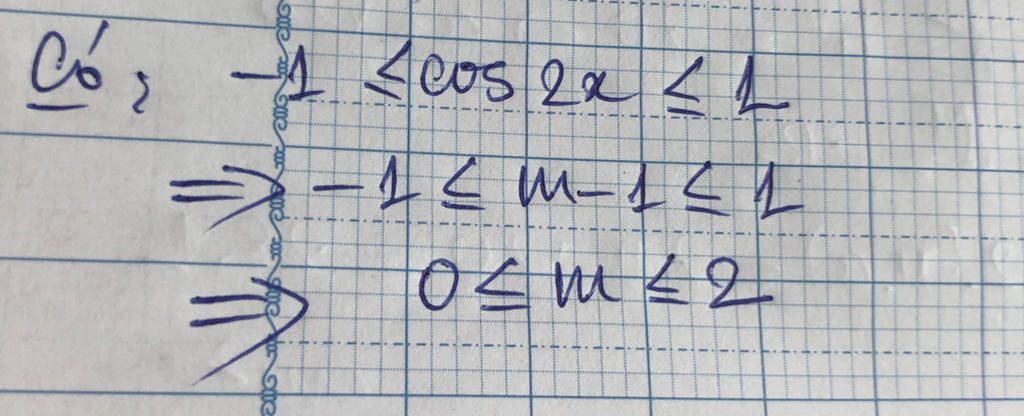 Có: -1 ≤ cos 2x ≤ 1
⇒ -1 ≤ m-1 ≤ 1
⇒ 0 ≤ m ≤ 2